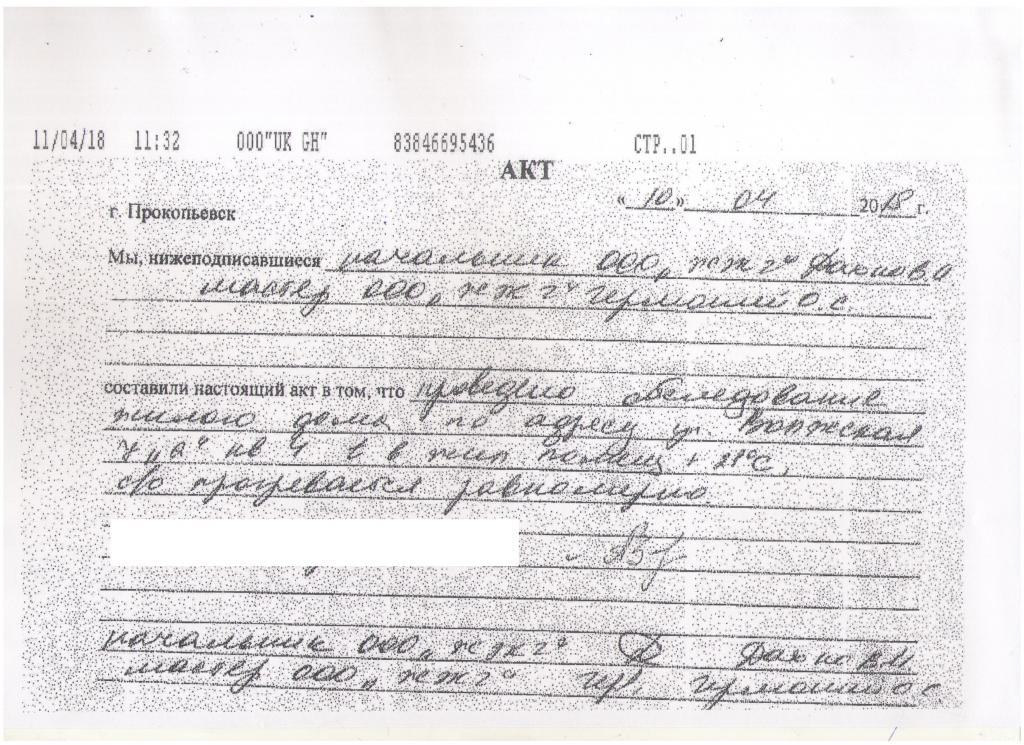 11/04/18 11:32 ООО"UK GH" 83846695436 СТР..01
АКТ
г. Прокопьевск «10» 04 2018 г.
Мы, нижеподписавшиеся начальник ООО „ЖЖГ"
мастер ООО „ЖЖГ" О.С
составили настоящий акт в том, что проведено обследование
жилого дома по адресу ул. Волжская
7 „а" кв 4 t в жил помещ + 21°С,
с/о прогревается равномерно
начальник ООО „ЖЖГ"
мастер ООО „ЖЖГ" О.С